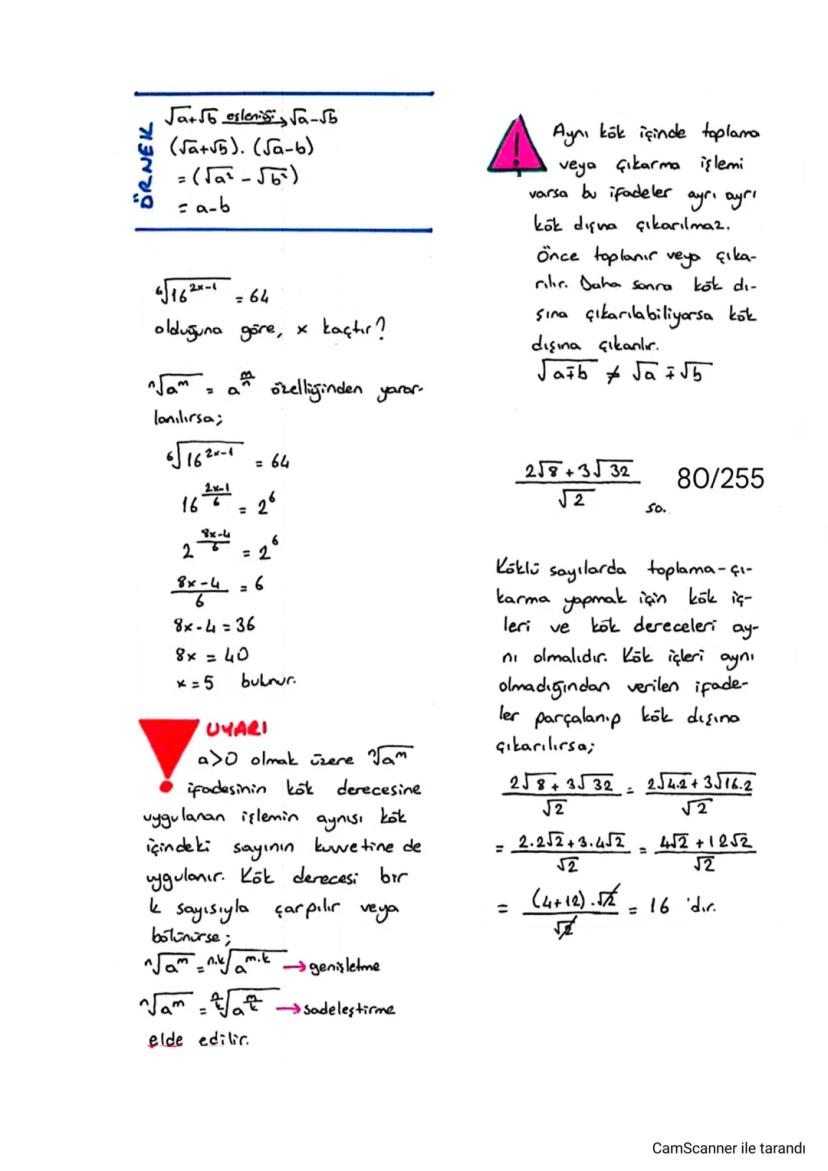 ÖRNEK
√a+√b eşleniği → √a-√b
(√a+√b). (√a-b)
= (√a² - √b²)
= a-b
⁶√16^(2x-1) = 64
olduğuna göre, x kaçtır?
ⁿ√a^m = a^(m/n) özelliğinden yarar-
lanılırsa;
⁶√16^(2x-1) = 64
16^((2x-1)/6) = 2⁶
2^((8x-4)/6) = 2⁶
(8x-4)/6 = 6
8x-4 = 36
8x = 40
x = 5 bulunur.
UYARI
a>0 olmak üzere ⁿ√a^m
ifadesinin kök derecesine
uygulanan işlemin aynısı kök
içindeki sayının kuvvetine de
uygulanır. Kök derecesi bir
k sayısıyla çarpılır veya
bölünürse;
ⁿ√a^m = ^(n.k)√a^(m.k) → genişletme
ⁿ√a^m = ^(n/k)√a^(m/k) → sadeleştirme
elde edilir.
!
Aynı kök içinde toplama
veya çıkarma işlemi
varsa bu ifadeler ayrı ayrı
kök dışına çıkarılmaz.
Önce toplanır veya çıka-
rılır. Daha sonra kök dı-
şına çıkarılabiliyorsa kök
dışına çıkarılır.
√(a∓b) ≠ √a ∓ √b
(2√8 + 3√32)/√2 so. 80/255
Köklü sayılarda toplama-çı-
karma yapmak için kök iç-
leri ve kök dereceleri ay-
nı olmalıdır. Kök içleri aynı
olmadığından verilen ifade-
ler parçalanıp kök dışına
çıkarılırsa;
(2√8 + 3√32)/√2 = (2√4.2 + 3√16.2)/√2
= (2.2√2 + 3.4√2)/√2 = (4√2 + 12√2)/√2
= ((4+12).√2)/√2 = 16 'dır.
CamScanner ile tarandı